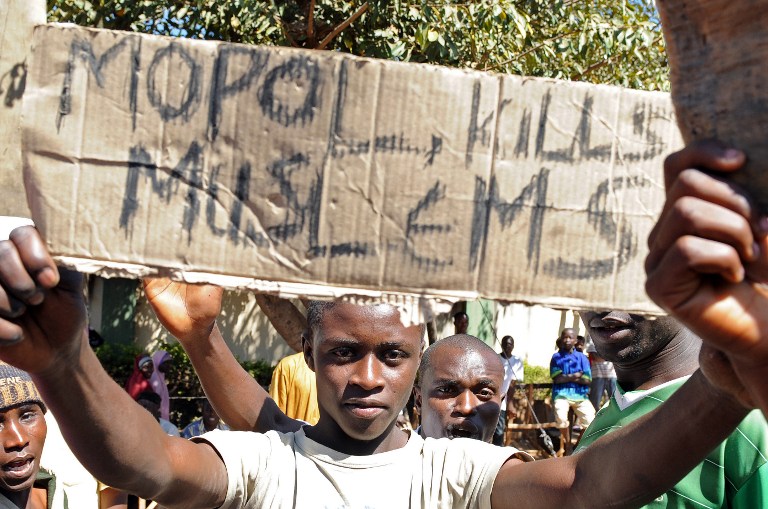 MOPOL, KILLS
MUSLEMS